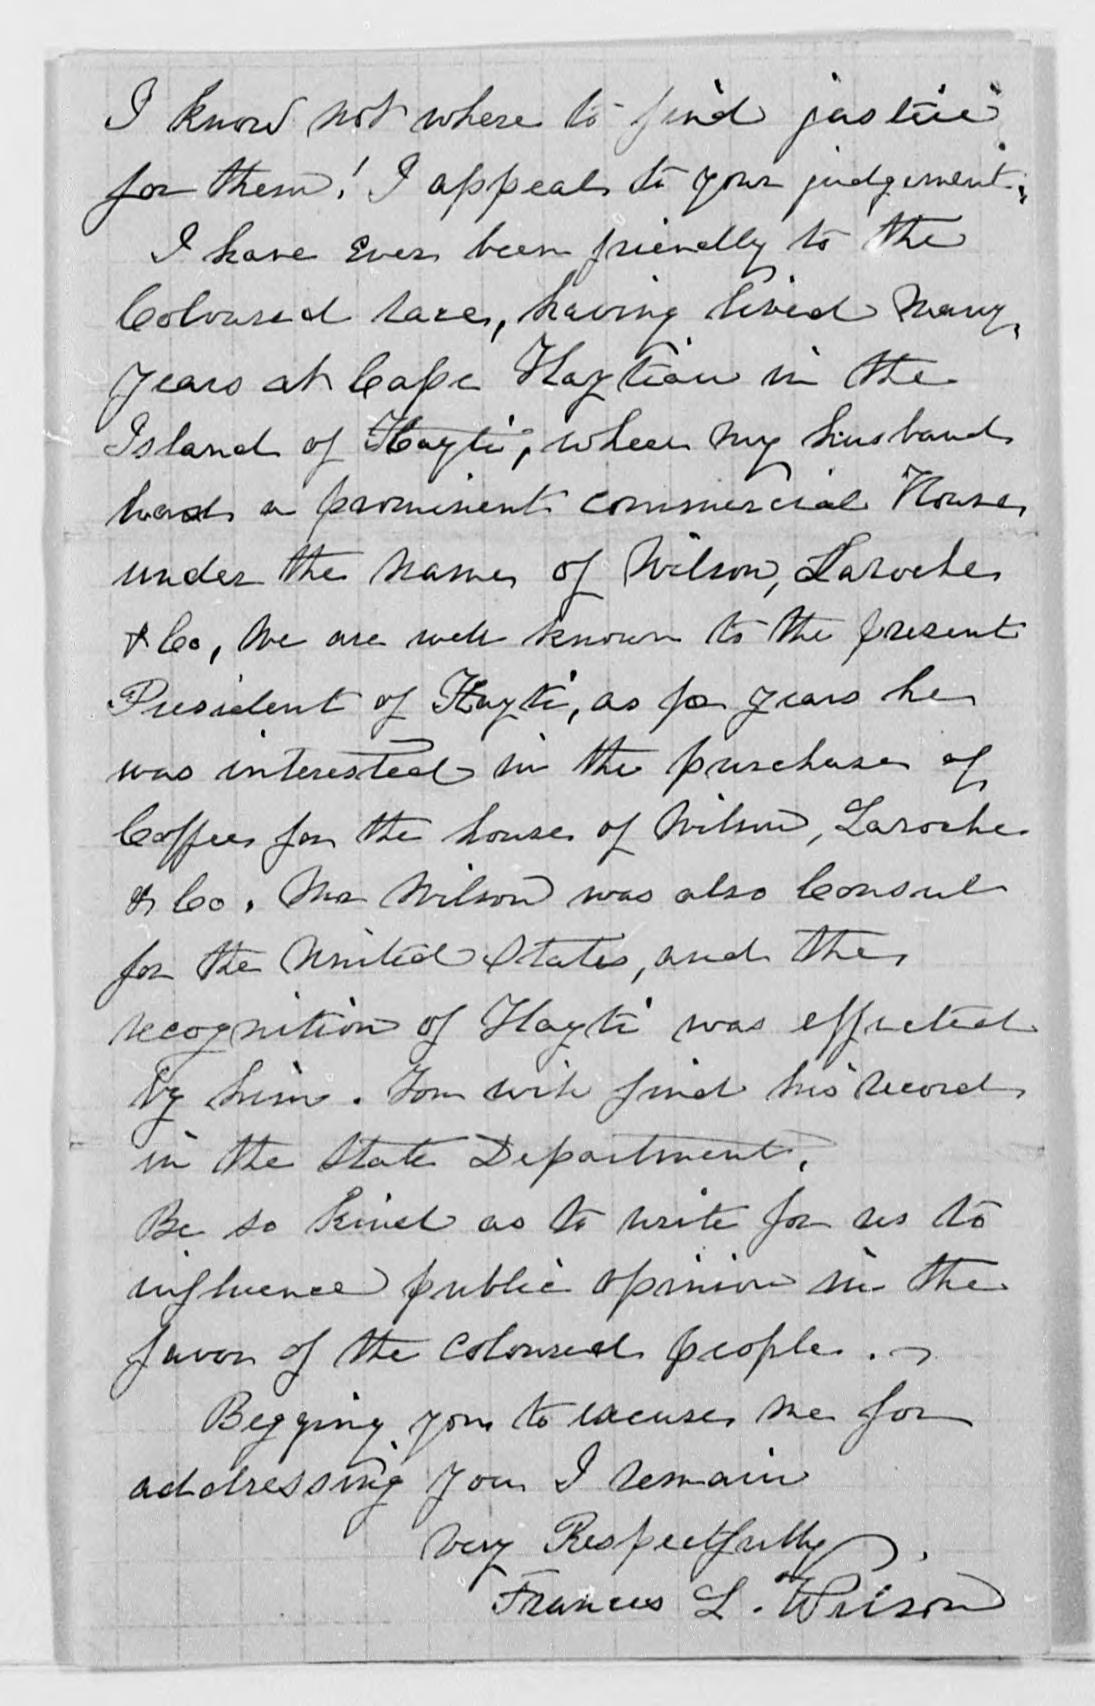 I know not where to find justice
for them! I appeal to your judgement.
I have ever been friendly to the
Coloured race, having lived many
years at Cape Haytian in the
Island of Hayti, where my husband
had a prominent commercial House
under the name of Wilson, Laroche
& Co, We are well known to the present
President of Hayti, as for years he
was interested in the purchase of
Coffee for the house of Wilson, Laroche
& Co. Mr Wilson was also Consul
for the United States, and the
recognition of Hayti was effected
by him. You will find his record
in the State Department.
Be so kind as to write for us to
influence public opinion in the
favor of the coloured people.
Begging you to excuse me for
addressing you I remain
Very Respectfully
Frances L. Wilson